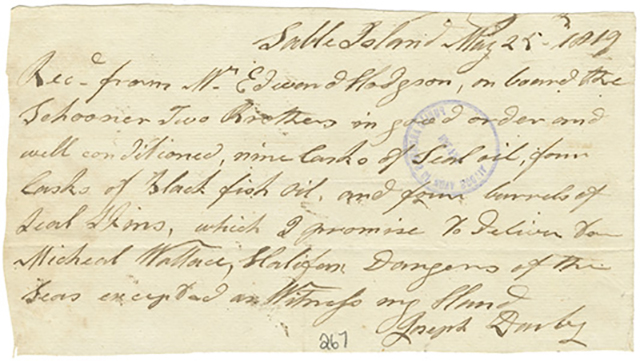 Sable Island May 25th 1819
Recd from Mr Edward Hodgson, on board the
Schooner Two Brothers in good order and
well conditioned, nine Casks of Seal oil, four
Casks of Black fish oil, and four barrels of
Seal Skins, which I promise to deliver to
Micheal Wallace, Halifax Dangers of the
Seas excepted as Witness my Hand
Joseph Darby
267